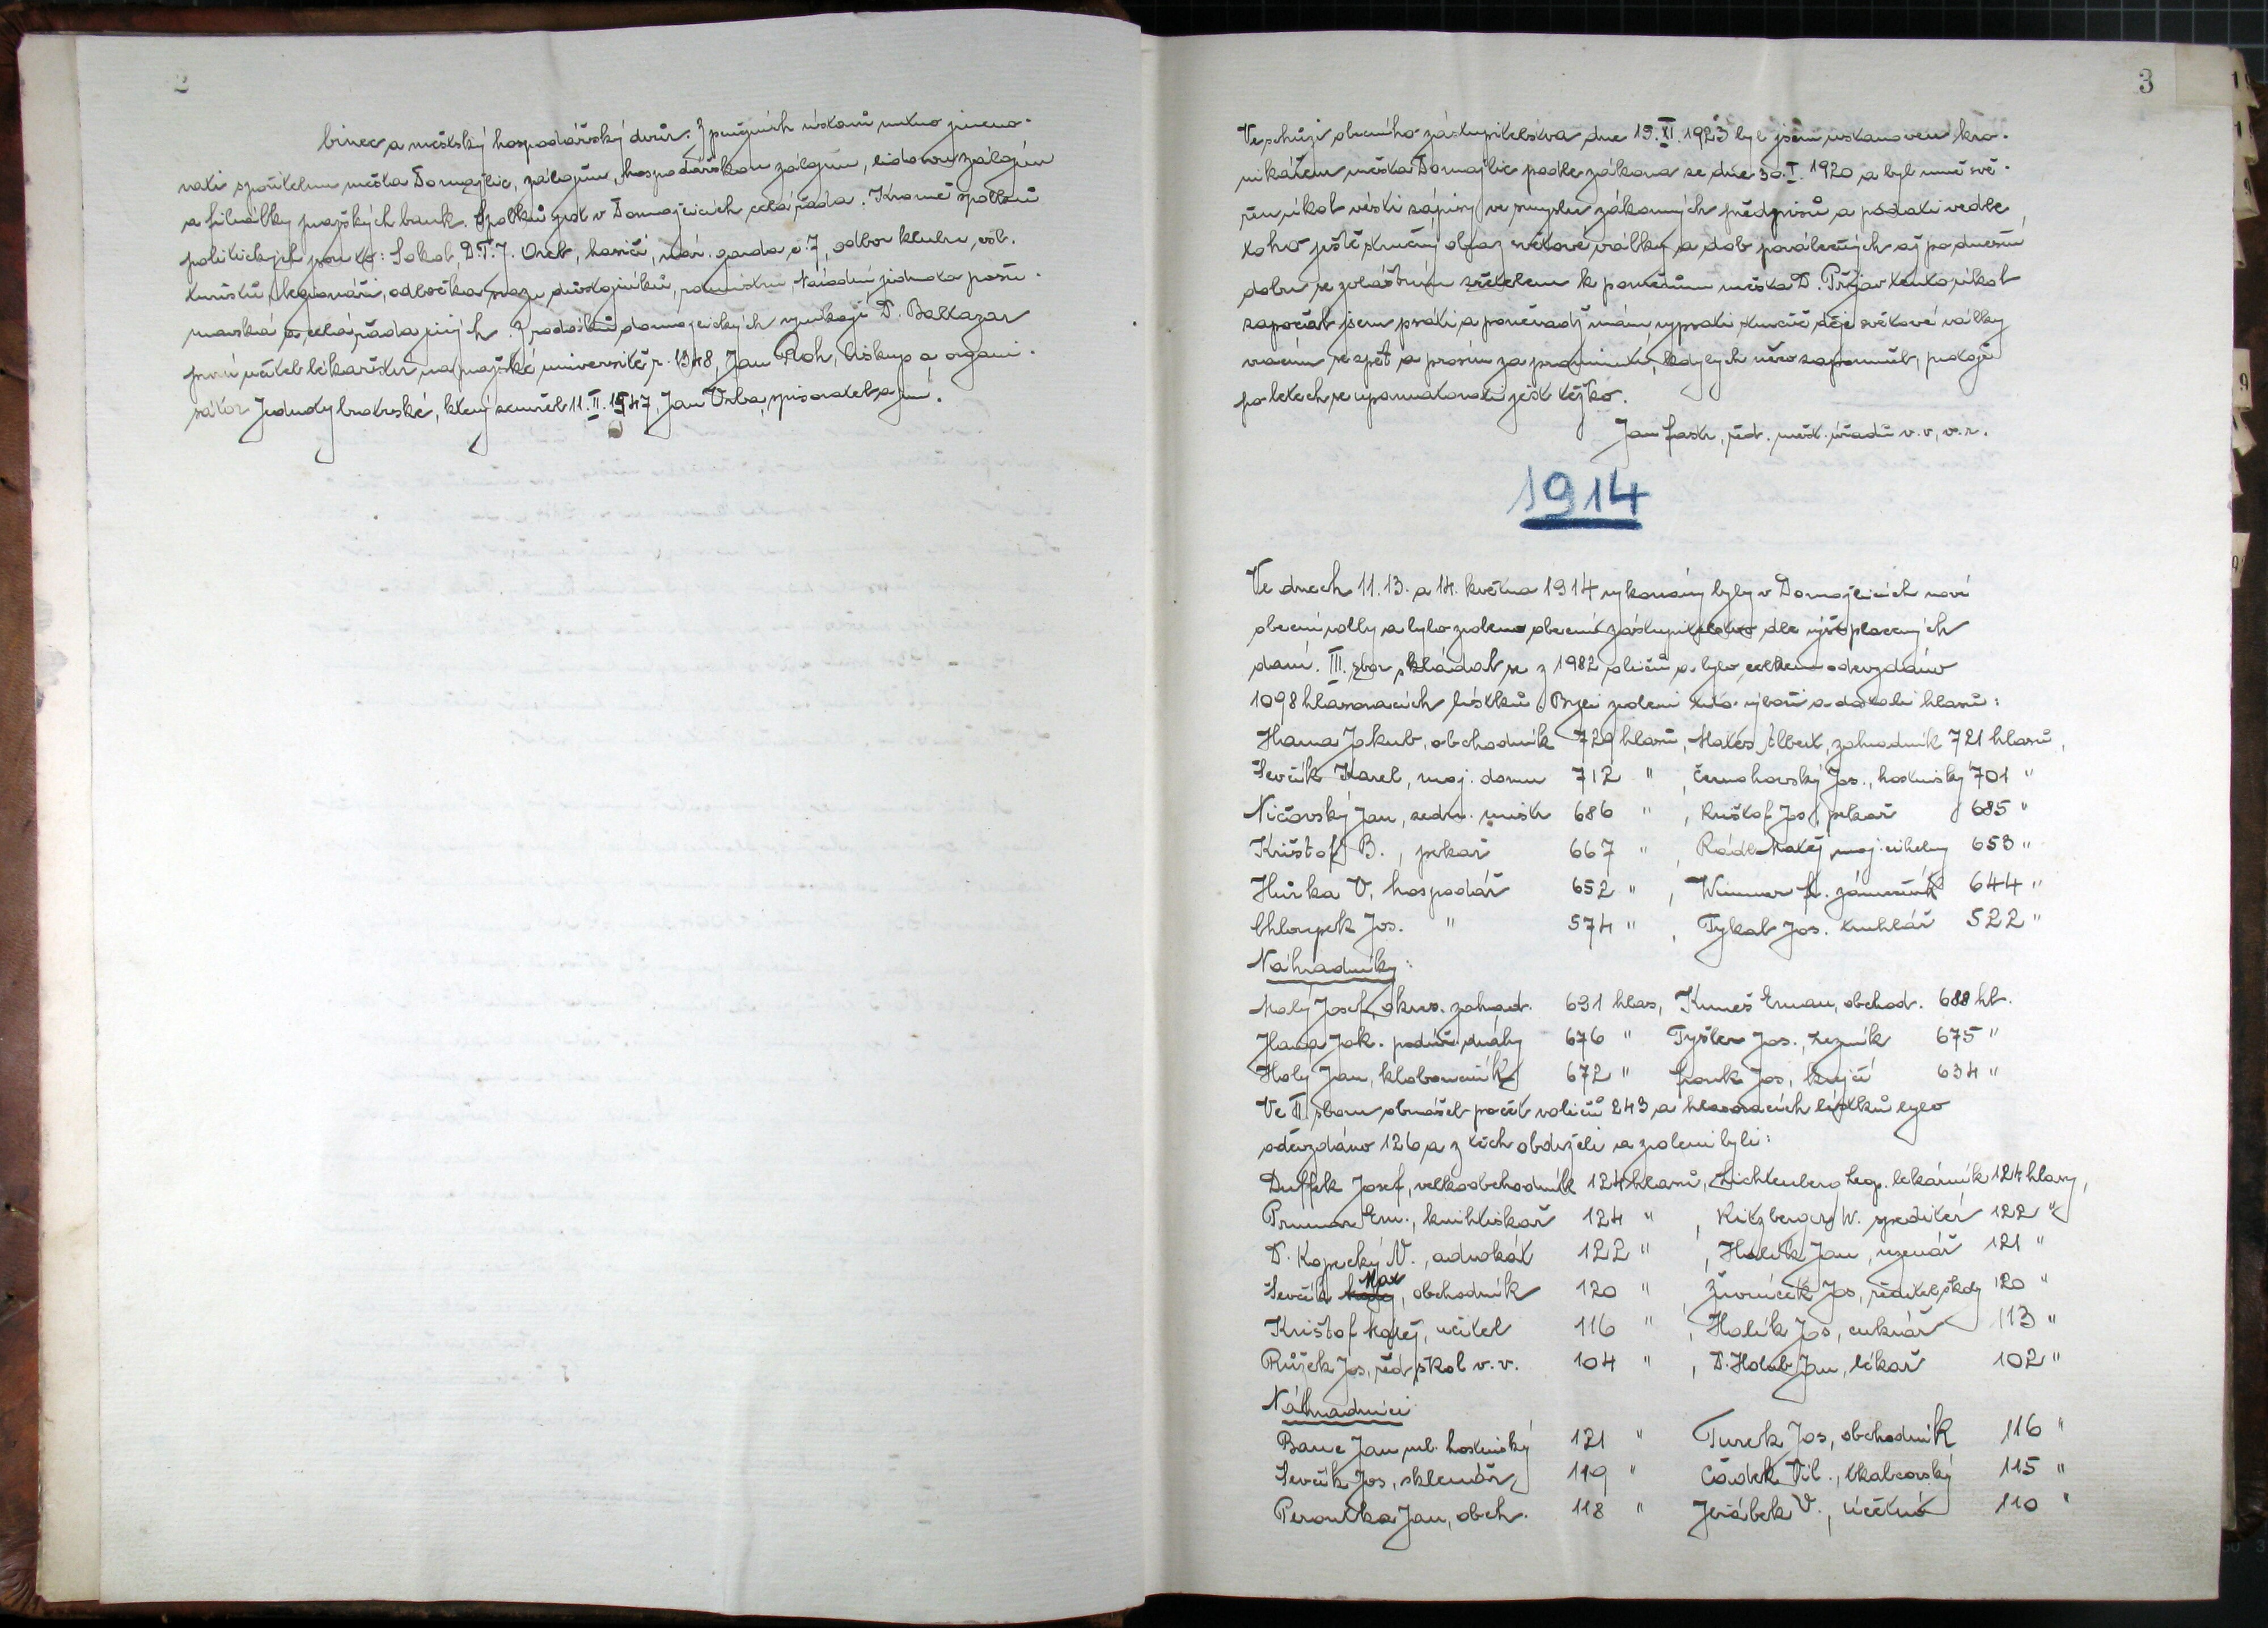 2
binec a městský hospodářský dvůr. Z peněžních ústavů nutno jmeno-
vati spořitelnu města Domažlic, záložnu, hospodářskou záložnu, lidovou záložnu
a filiálky pražských bank. Spolků jest v Domažlicích celá řada. Kromě spolků
politických jsou to: Sokol, D.T.J. Orel, hasiči, nár. garda č. 7, odbor klubu čsl.
turistů, legionáři, odbočka svazu důstojníků, Národní jednota pošu-
mavská a celá řada jiných. Z rodáků domažlických vynikají D. Baltazar
první učitel lékařství na pražské universitě r. 1348, Jan Roh, biskup a organi-
sátor Jednoty bratrské, který zemřel 11. II. 1547, Jan Vrba, spisovatel a jiní.
3
Ve schůzi obecního zastupitelstva dne 15. XI. 1923 byl jsem ustanoven kro-
nikářem města Domažlic podle zákona ze dne 30. I. 1920 a byl mně svě-
řen úkol vésti zápisy ve smyslu zákonných předpisů a podati vedle
toho ještě stručný obraz světové války a dob poválečných až po dnešní
dobu se zvláštním zřetelem k poměrům města D. Přijav tento úkol
započal jsem psáti a poněvadž mám vypsati stručně děje světové války
vracím se zpět a prosím za prominutí, kdybych něco zapomněl, protože
po letech se upamatovati jest těžko.
Jan , řed. měst. úřadů v. v., v. r.
1914
Ve dnech 11. 13. a 14. května 1914 vykonány byly v Domažlicích nové
obecní volby a bylo zvoleno obecní zastupitelstvo dle výše placených
daní. III. sbor skládal se z 1982 voličů a bylo celkem odevzdáno
1098 hlasovacích lístků. Byli zvoleni tito výboři a dostali hlasů:
Hana Jakub, obchodník 729 hlasů, Mates Albert, zahradník 721 hlasů,
Ševčík Karel, maj. domu 712 " , Černohovský Jos., hostinský 701 "
Ničovský Jan, zedn. mistr 686 " , Krištof Jos, pekař 685 "
Krištof B., pekař 667 " , Rádl Matěj maj. cihelny 653 "
Hůrka V, hospodář 652 " , Wimmer zámečník 644 "
Chloupek Jos. " 574 " , Tykal Jos. truhlář 522 "
Náhradníky:
Malý Josef, okres. zahrad. 691 hlas, Kuneš Eman, obchod. 688 hl.
Hana Jak. podúř. dráhy 676 " Tyšler Jos., řezník 675 "
Holý Jan, kloboučník 672 " Jos, krejčí 634 "
Ve II. sboru obnášel počet voličů 243 a hlasovacích lístků bylo
odevzdáno 126 a z těch obdrželi a zvoleni byli:
Duffek Josef, velkoobchodník 124 hlasů, Lichtenberg Leop. lekárník 124 hlasy,
Prunar Em., knihtiskař 124 " , Kitzberger W. speditér 122 "
D. Kopecký V., advokát 122 " , Halík Jan, uzenář 121 "
Ševčík Max, obchodník 120 " , Živnůček Jos, ředitel školy 120 "
Krištof Matěj, učitel 116 " , Halík Jos, cukrář 113 "
Růžek Jos, řed škol v. v. 104 " , D. Holub Jan, lékař 102 "
Náhradníci
Bauer Jan ml. hostinský 121 " Turek Jos, obchodník 116 "
Ševčík Jos, sklenář 119 " Čádek Vil., tkalcovský 115 "
Peroutka Jan, obch. 118 " Jeřábek V., účetní 110 "